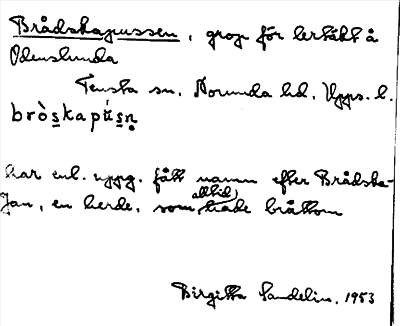 Brådskapussen, grop för lertäkt å
Odenslunda
Tensta sn, Norunda hd, Upps. l.
bròskapúsn
har enl. uppg. fått namn efter Brådska-
Jan, en herde, som alltid hade bråttom
Birgitta Sandelin, 1953